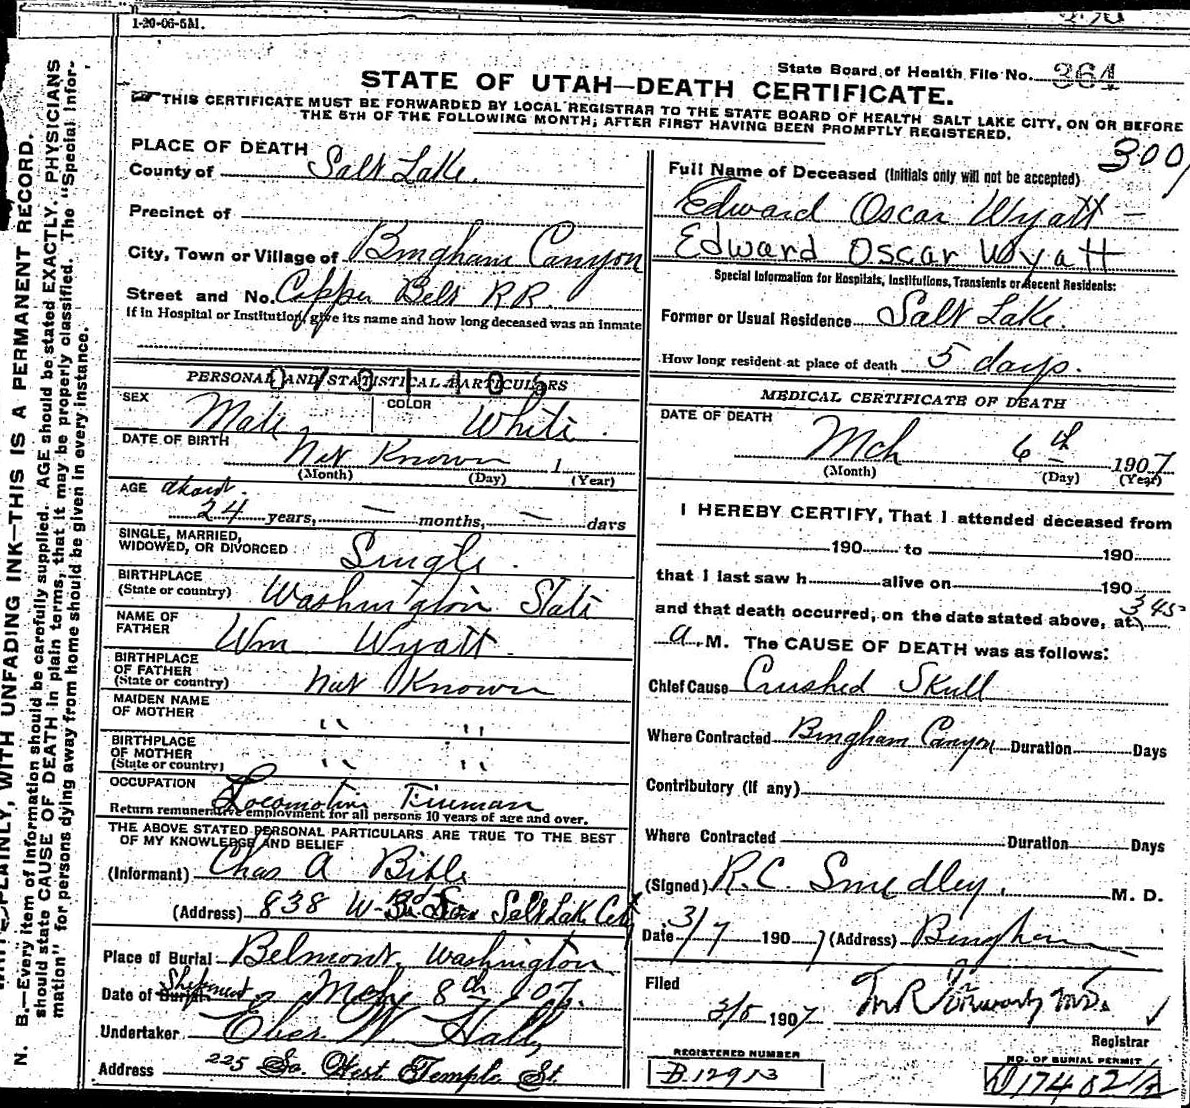 1-20-06-5M.
State Board of Health File No. 364
STATE OF UTAH—DEATH CERTIFICATE.
THIS CERTIFICATE MUST BE FORWARDED BY LOCAL REGISTRAR TO THE STATE BOARD OF HEALTH SALT LAKE CITY, ON OR BEFORE
THE 5TH OF THE FOLLOWING MONTH; AFTER FIRST HAVING BEEN PROMPTLY REGISTERED.
N. B.—Every item of information should be carefully supplied. AGE should be stated EXACTLY. PHYSICIANS
should state CAUSE OF DEATH in plain terms, that it may be properly classified. The "Special Infor-
mation" for persons dying away from home should be given in every instance.
PLAINLY, WITH UNFADING INK—THIS IS A PERMANENT RECORD.
PLACE OF DEATH
County of Salt Lake.
Precinct of
City, Town or Village of Bingham Canyon
Street and No. Copper Belt R R.
If in Hospital or Institution, give its name and how long deceased was an inmate
PERSONAL AND STATISTICAL PARTICULARS
SEX Male
COLOR White.
DATE OF BIRTH Not Known 1
(Month) (Day) (Year)
AGE about
24 years, — months, — days
SINGLE, MARRIED,
WIDOWED, OR DIVORCED Single.
BIRTHPLACE
(State or country) Washington State
NAME OF
FATHER Wm Wyatt
BIRTHPLACE
OF FATHER
(State or country) Not Known
MAIDEN NAME
OF MOTHER " "
BIRTHPLACE
OF MOTHER
(State or country) " "
OCCUPATION Locomotive Fireman
Return remunerative employment for all persons 10 years of age and over.
THE ABOVE STATED PERSONAL PARTICULARS ARE TRUE TO THE BEST
OF MY KNOWLEDGE AND BELIEF
(Informant) Chas A Bible
(Address) 838 W Salt Lake City
Place of Burial Belmont, Washington
Date of Burial Shipment Mch 8th 07.
Undertaker Eber W. Hall,
Address 225 So. West Temple St.
300
Full Name of Deceased (Initials only will not be accepted)
Edward Oscar Wyatt —
Edward Oscar Wyatt
Special Information for Hospitals, Institutions, Transients or Recent Residents:
Former or Usual Residence Salt Lake.
How long resident at place of death 5 days.
MEDICAL CERTIFICATE OF DEATH
DATE OF DEATH
Mch 6th 1907
(Month) (Day) (Year)
I HEREBY CERTIFY, That I attended deceased from
190 to 190
that I last saw h alive on 190
and that death occurred, on the date stated above, at 3 45
a. M. The CAUSE OF DEATH was as follows:
Chief Cause Crushed Skull
Where Contracted Bingham Canyon Duration Days
Contributory (if any)
Where Contracted Duration Days
(Signed) R.C. Smedley, M. D.
Date 3/7 1907 (Address) Bingham
Filed
1907
Registrar
REGISTERED NUMBER
B12913
NO. OF BURIAL PERMIT